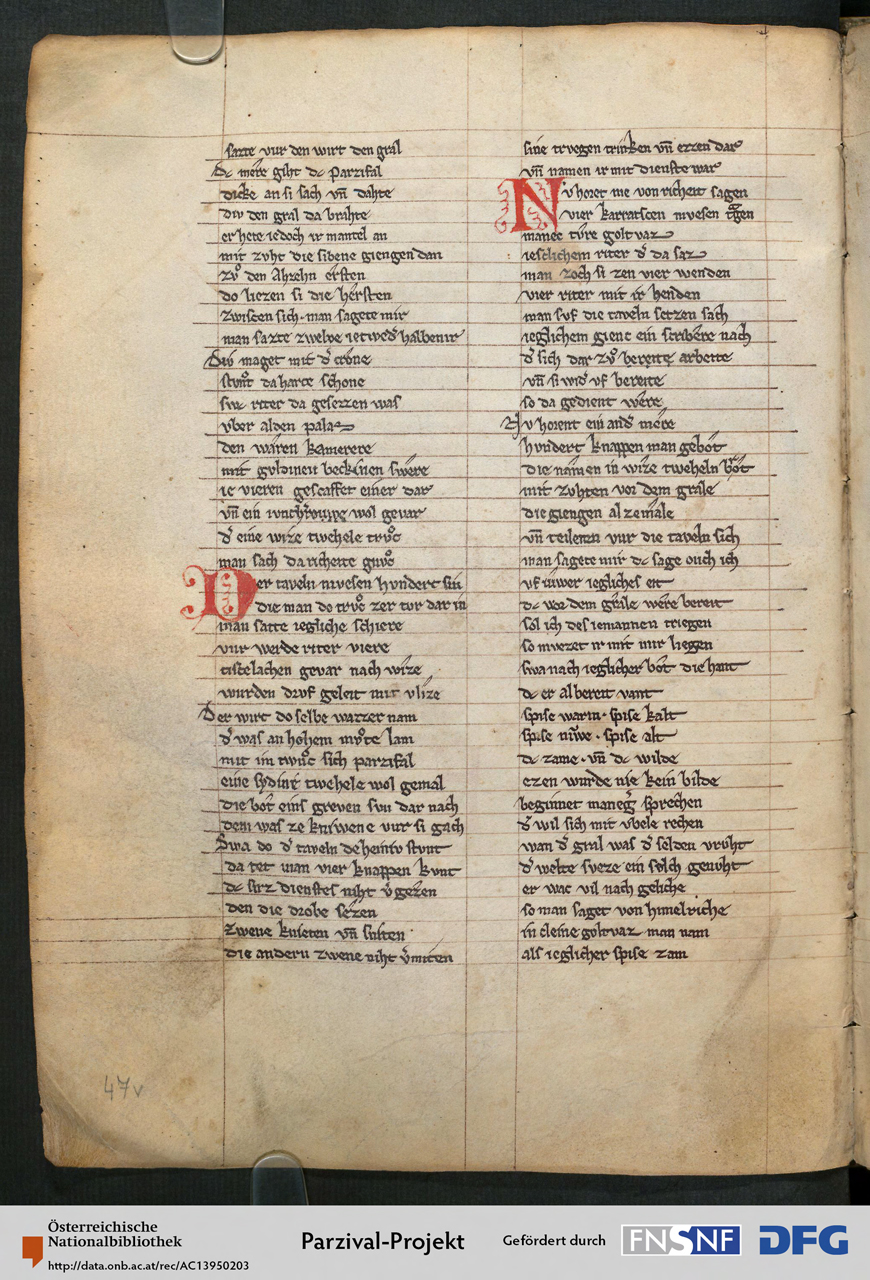 sazte vur den wirt den gral
Dc mere giht dc Parzifal
dicke an si sach vn̄ dahte
div den gral da brahte
er hete iedoch ir mantel an
mit zvht die sibene giengen dan
zvͦ den Ahzehn ersten
do liezen si die hersten
zwiscen sich · man sagete mir
man sazte zwelve ietwed̛ halbenir
Div maget mit d̛ crone
stvnͦt da harte schone
swc riter da gesezzen was
vber al den palaz
den waren kamerere
mit gvldinen beckinen swere
ie vieren gescaffet einer dar
vn̄ ein wol gevar
d̛ eine wize twehele trvͦc
man sach da richeite gnvͦc
Der taveln mvesen hvndert sin
die man do trvͦc zer tvr dar in
man satte iegliche schiere
vur werde riter viere
tiscelachen gevar nach wize
wurden drvf geleit mit vlize
Der wirt do selbe wazzer nam
d̛ was an hohem mvͦte lam
mit im twvͦc sich parzifal
eine sydine twehele wol gemal
die bot eins greven svn dar nach
dem was ze kniwene vur si gach
Swa do d̛ taveln deheiniv stvnt
da tet man vier knappen kvnt
dc sirz dienstes niht v̛gezen
den die drobe sezen
zwene knieten vn̄ sniten
die andern zwene niht v̛miten
sine trvegen trinken vn̄ ezzen dar
vn̄ namen ir mit dienste war
Nv horet me von richeit sagen
vier karratscen mvesen tragen
manec tvre golt vaz
ieslichem riter d̛ da saz
man zoch si zen vier wenden
vier riter mit ir henden
man svf die taveln setzen sach
ieglichem gienc ein scribere nach
d̛ sich dar zvͦ bereite arbeite
vn̄ si wid̛ vf bereite
so da gedient were
Nv horent ein and̛ mere
hvndert knappen man gebot
die namen in wize tweheln brot
mit zvhten vor dem grale
die giengen al zemale
vn̄ teilenzn vur die taveln sich
man sagete mir dc sage ouch ich
vf iuwer iegliches eit
dc vor dem grale were bereit
sol ich des iemannen triegen
so mvezet ir mit mir liegen
swa nach ieglicher bot die hant
dc er al bereit vant
spise warm · spise kalt
spise niwe · spise alt
dc zame · vn̄ dc wilde
ezen wurde nie kein bilde
beginnet maneg̛ sprechen
d̛ wil sich mit vbele rechen
wan d̛ gral was d̛ selden vruht
d̛ welte sveze ein solch genuht
er wac vil nach geliche
so man saget von himelriche
in cleine golt vaz man nam
als ieglicher spise zam
47v
Österreichische
Nationalbibliothek
http://data.onb.ac.at/rec/AC13950203
Parzival-Projekt
Gefördert durch
FNSNF
DFG